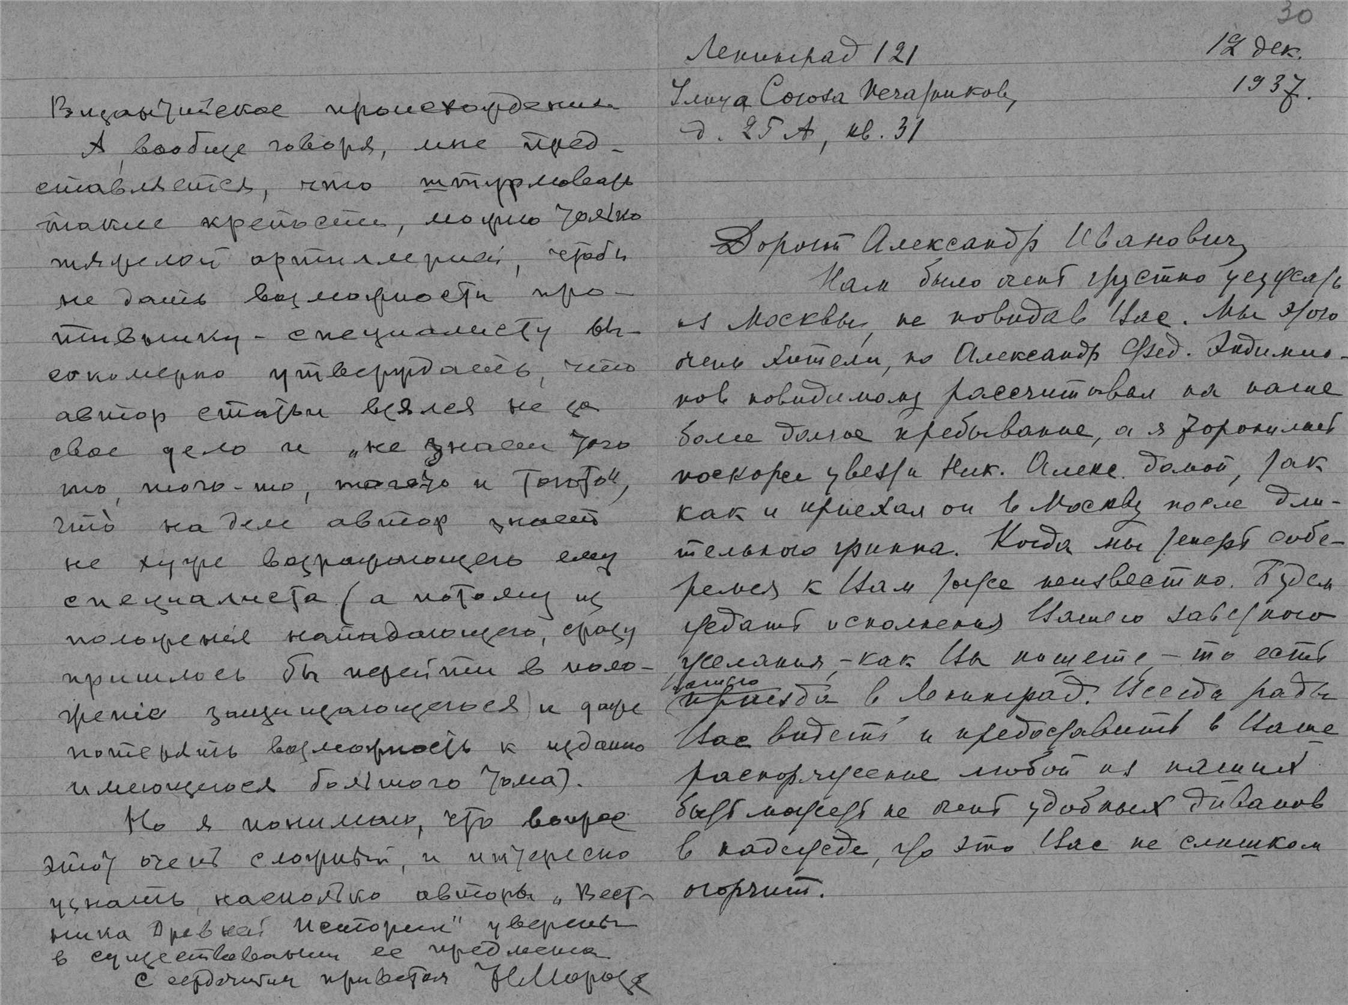 30
Ленинград 121 12 дек.
1937.
Улица Союза Печатников,
д. 25 А, кв. 31
Дорогой Александр Иванович,
Нам было очень грустно уезжать
из Москвы, не повидав Вас. Мы этого
очень хотели, но Александр Фед.
нов повидимому рассчитывал на наше
более долгое пребывание, а я торопилась
поскорее увезти Ник. Алекс. домой, так
как и приехал он в Москву после дли-
тельного гриппа. Когда мы теперь собе-
ремся к Вам тоже неизвестно. Будем
ждать исполнения Вашего заветного
желания, – как Вы пишете, – то есть
Вашего
приезда в Ленинград. Всегда рады
Вас видеть и предоставить в Ваше
распоряжение любой из наших
быть может не очень удобных диванов
в надежде, что это Вас не слишком
огорчит.
Византийское происхождение
А вообще говоря, мне пред-
ставляется, что штурмовать
такие крепости, можно только
тяжелой артиллерией, чтобы
не дать возможности про-
тивнику - специалисту вы-
сокомерно утверждать, что
автор статьи взялся не за
свое дело и „не знает того
то, того-то, того-то и того-то",
что на деле автор знает
не хуже возражающего ему
специалиста (а потому из
положения нападающего, сразу
пришлось бы перейти в поло-
жение защищающегося) и даже
потерять возможность к изданию
имеющегося большого тома).
Но я понимаю, что вопрос
этот очень сложный, и интересно
узнать, насколько авторы „Вест-
ника Древней Истории" уверены
в существовании ее предмета
С сердечным приветом Н Морозов